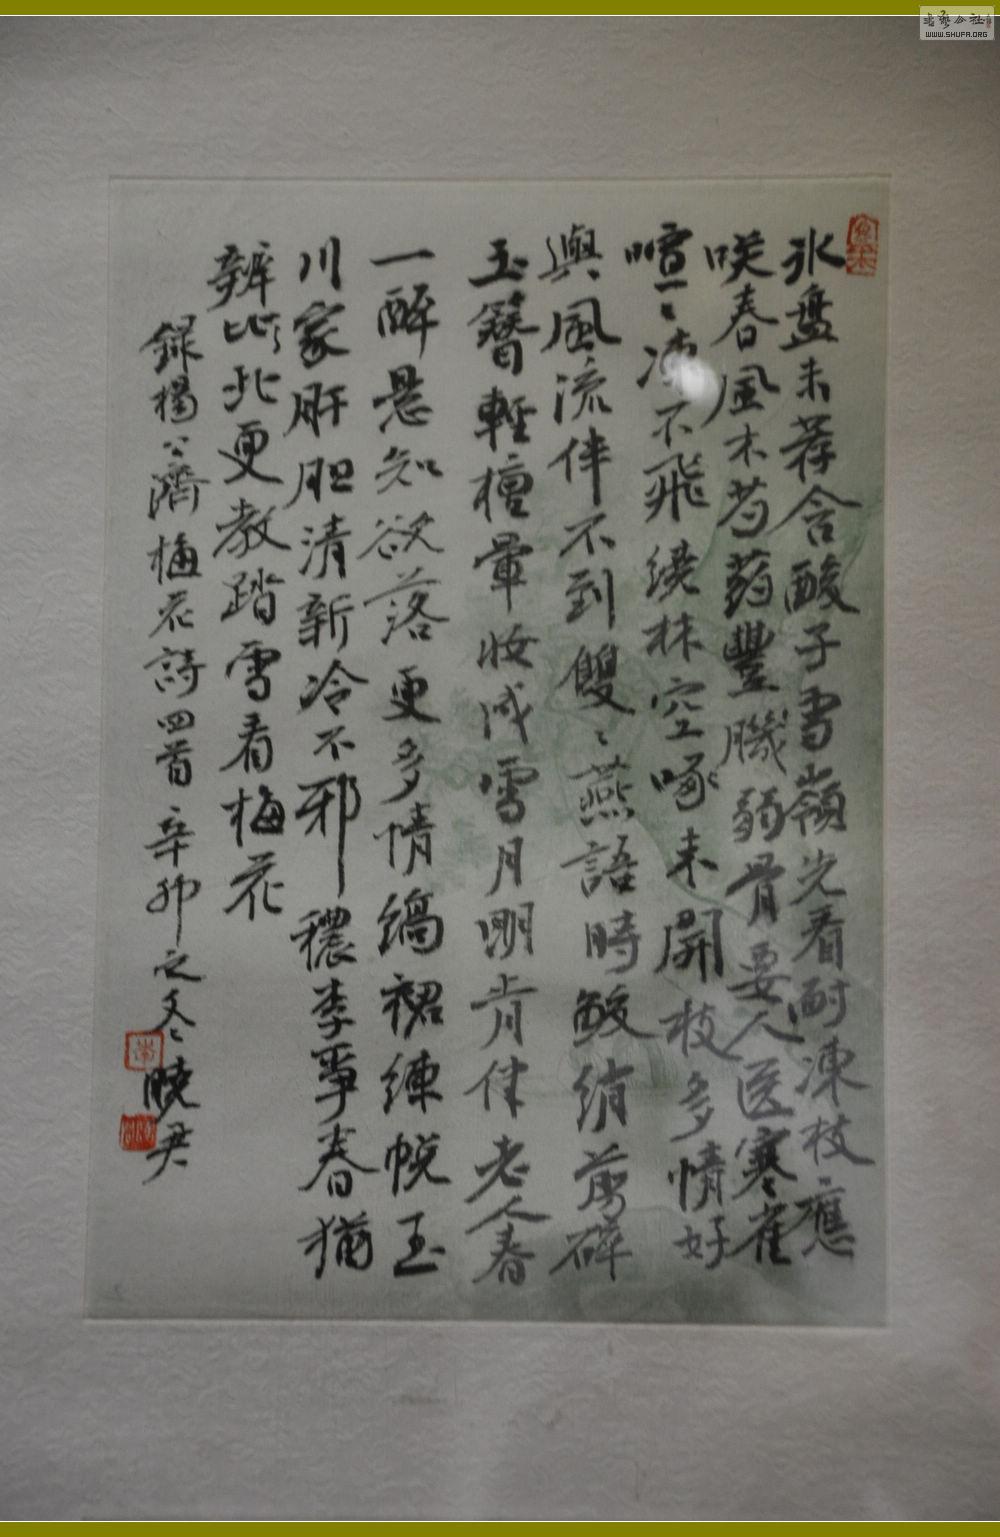 冰盤未荐含酸子雪嶺先看耐凍枝應
咲春風木芍葯豐肌弱骨要人医寒雀
喧喧凍不飛繞林空啄未開枝多情好
與風流伴不到雙雙燕語時鮫綃剪碎
玉簪輕檀暈妝成雪月明肯伴老人春
一醉懸知欲落更多情縞裙練帨玉
川家肝胆清新冷不邪穠李爭春猶
辨此更教踏雪看梅花
錄楊公濟梅花詩四首辛卯之冬曉尹
WWW.SHUFA.ORG